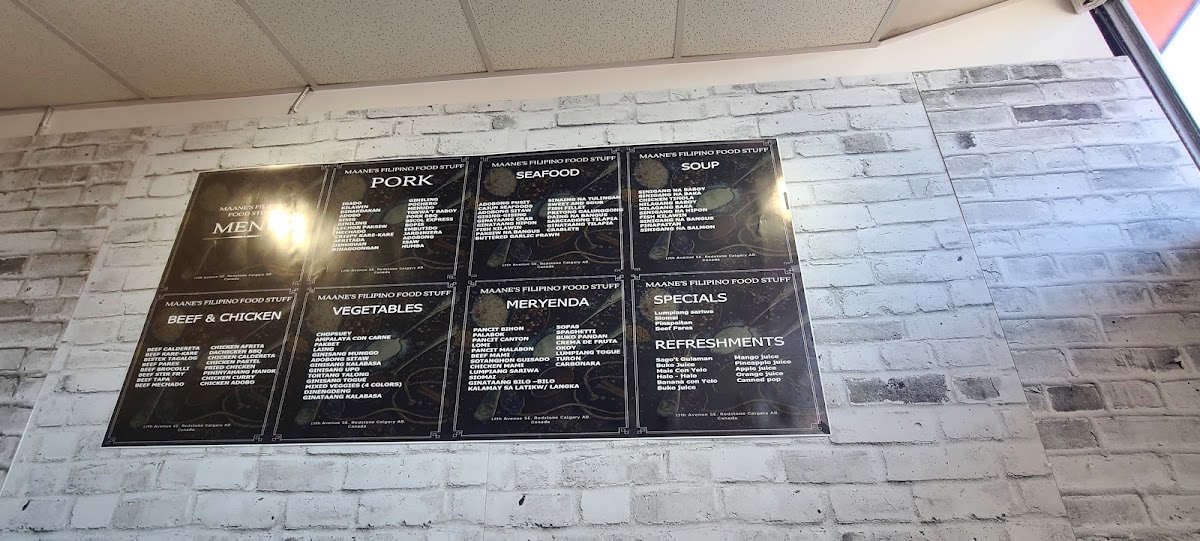 MAANE'S FILIPINO
FOOD STUFF
MENU
17th Avenue SE, Redstone Calgary AB
Canada
MAANE'S FILIPINO FOOD STUFF
PORK
IGADO
KILAWIN
DINAKDAKAN
ADOBO
SISIG
GINILING
LECHON PAKSIW
MECHADO
CRISPY KARE-KARE
AFRITADA
DINUGUAN
BINAGOONGAN
GINSLING
POCHERO
MENUDO
TOKWAT BABOY
PORK BBQ
BICOL EXPRESS
BOPIS
EMBUTIDO
JARDINERA
ADOBONG
ISAW
HUMBA
17th Avenue SE, Redstone Calgary AB
Canada
MAANE'S FILIPINO FOOD STUFF
SEAFOOD
ADOBONG PUSIT
CAJUN SEAFOODS
ADOBONG SITAW
GISING-GISING
GINATAANG CRAB
GINATAANG HIPON
FISH KILAWIN
PAKSIW NA BANGUS
BUTTERED GARLIC PRAWN
SINAING NA TULINGAN
SWEET AND SOUR
FISH FILLET
PRITONG GALUNGGONG
DAING NA BANGUS
SARCIADONG TILAPIA
GINATAANG TILAPIA
CRABLETS
17th Avenue SE, Redstone Calgary AB
Canada
MAANE'S FILIPINO FOOD STUFF
SOUP
SINIGANG NA BABOY
SINIGANG NA BAKA
CHICKEN TINOLA
NILAGANG BABOY
NILAGANG BAKA
SINIGANG NA HIPON
FISH KILAWIN
SINIGANG NA BANGUS
PINAPAITAN
SINIGANG NA SALMON
17th Avenue SE, Redstone Calgary AB
Canada
MAANE'S FILIPINO FOOD STUFF
BEEF & CHICKEN
BEEF CALDERETA
BEEF KARE-KARE
BISTEK TAGALOG
BEEF PARES
BEEF BROCOLLI
BEEF STIR FRY
BEEF TAPA
BEEF MECHADO
CHICKEN AFRITA
DACHICKEN BBQ
CHICKEN CALDERETA
CHICKEN PASTEL
FRIED CHICKEN
PININYAHANG MANOK
CHICKEN CURRY
CHICKEN ADOBO
17th Avenue SE, Redstone Calgary AB
Canada
MAANE'S FILIPINO FOOD STUFF
VEGETABLES
CHOPSUEY
AMPALAYA CON CARNE
PAKBET
LAING
GINISANG MUNGGO
ADOBONG SITAW
GINISANG KALABASA
GINISANG UPO
TORTANG TALONG
GINISANG TOGUE
MIXED VEGGIES (4 COLORS)
DINENGDENG
GINATAANG KALABASA
17th Avenue SE, Redstone Calgary AB
Canada
MAANE'S FILIPINO FOOD STUFF
MERYENDA
PANCIT BIHON
PALABOK
PANCIT CANTON
LOMI
PANCIT MALABON
BEEF MAMI
SOTANGHON GUISADO
CHICKEN MAMI
LUMPIANG SARIWA
SIOMAI
GINATAANG BILO -BILO
KALAMAY SA LATIKW/ LANGKA
SOPAS
SPAGHETTI
BUKO PANDAN
CREMA DE FRUTA
OKOY
LUMPIANG TOGUE
TURON
CARBONARA
MAANE'S FILIPINO FOOD STUFF
SPECIALS
Lumpiang sariwa
Siomai
Pinapaitan
Beef Pares
REFRESHMENTS
Sago't Gulaman
Buko Juice
Mais Con Yelo
Halo - Halo
Banana con Yelo
Buko juice
Mango juice
Pineapple juice
Apple juice
Orange juice
Canned pop
17th Avenue SE, Redstone Calgary AB
Canada